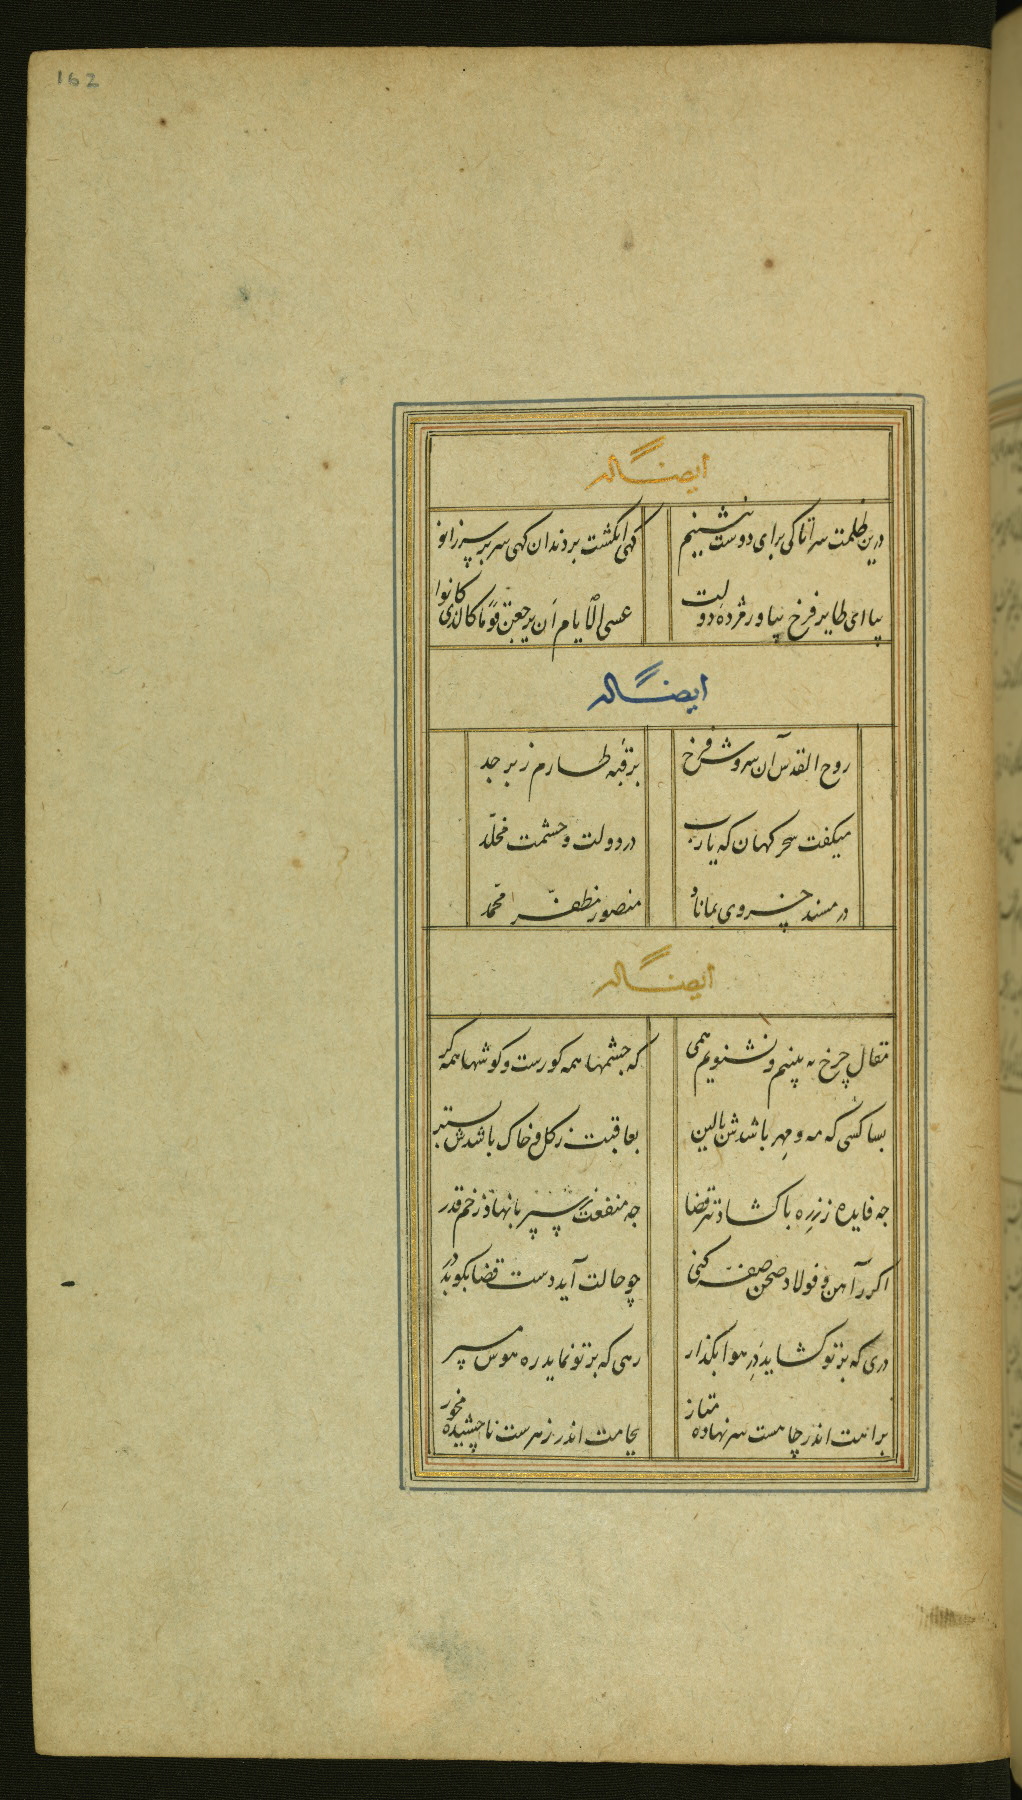 162
ایضا له
درین ظلمت سرا تا کی برای دوست بنشینم
کهی انکشت بر دندان کهی سر بر سر زانو
بیا ای طایر فرخ بیاور مژده دولت
عسی الأیام أن یرجعن قوما کالذی کانوا
ایضا له
روح القدس آن سروش فرخ
بر قبه طارم زبرجد
میکفت سحرکهان که یارب
در دولت و حشمت مخلّد
در مسند خسروی بماناد
منصور مظفّر محمّد
ایضا له
مقال چرخ نه بینم و نشنویم همی
که چشمها همه کورست و کوشها همه کر
بسا کسی که مه و مهر باشدش بالین
بعاقبت ز کل و خاک باشدش بستر
چه فایده ز زره با کشاد تیر قضا
چه منفعت ز سپر با نهاذ زخم قدر
اکر ز آهن و فولاد صحن صفّه کنی
چو حالت آید دست قضا بکوبد در
دری که بر تو کشاید در هوا بکذار
رهی که بر تو نماید ره هوس مسپر
براهت اندر چاهست سر نهاده متاز
بجامت اندر زهرست ناچشیده مخور